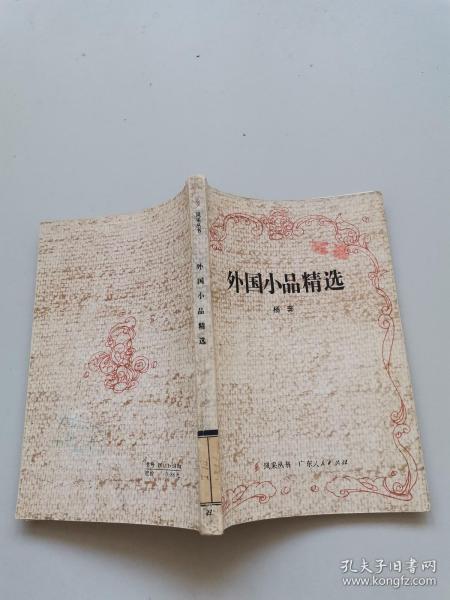 外国小品精选
杨奔
风采丛书 广东人民出版社
风采丛书
外国小品精选
孔夫子旧书网
www.kongfz.com